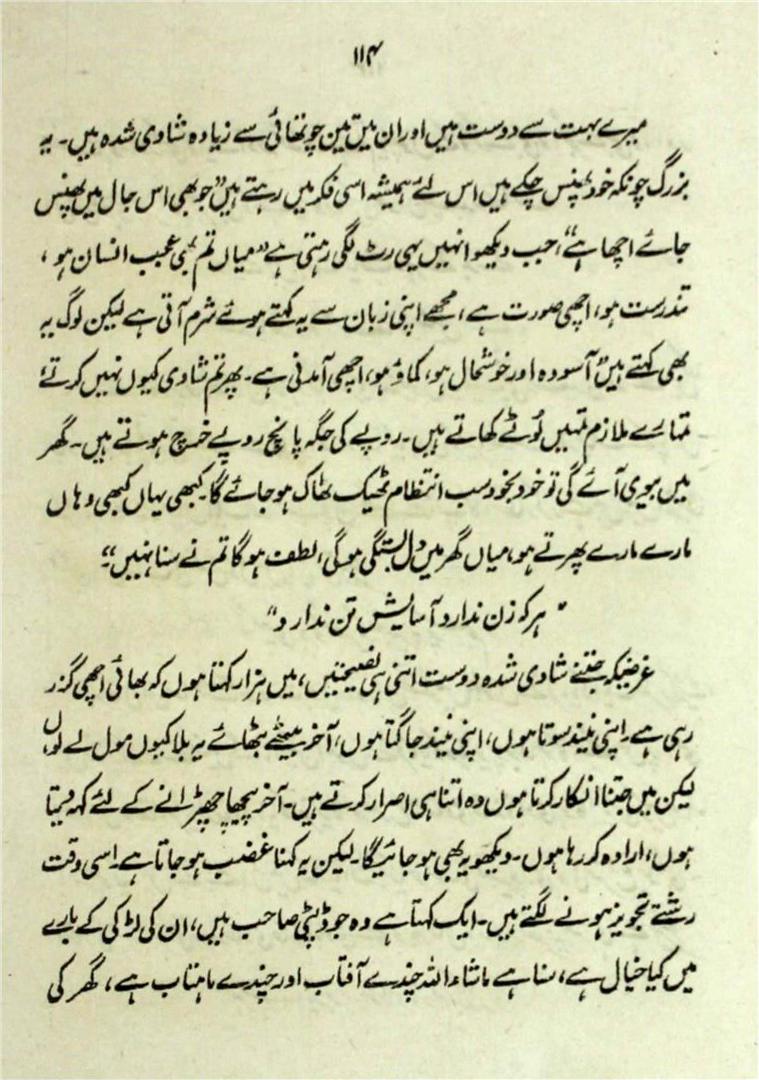 ۱۱۴
میرے بہت سے دوست ہیں اور ان میں تین چوتھائی سے زیادہ شادی شدہ ہیں۔ یہ
بزرگ چونکہ خود پھنس چکے ہیں اس لئے ہمیشہ اسی فکر میں رہتے ہیں "جو بھی اس جال میں پھنس
جائے اچھا ہے"، جب دیکھو انہیں یہی رٹ لگی رہتی ہے "میاں تم بھی عجب انسان ہو،
تندرست ہو، اچھی صورت ہے، مجھے اپنی زبان سے یہ کہتے ہوئے شرم آتی ہے لیکن لوگ یہ
بھی کہتے ہیں" آسودہ اور خوشحال ہو، کماؤ ہو، اچھی آمدنی ہے۔ پھر تم شادی کیوں نہیں کرتے؟
تمہارے ملازم تمہیں لوٹے کھاتے ہیں۔ روپے کی جگہ پانچ روپے خرچ ہوتے ہیں۔ گھر
میں بیوی آئے گی تو خود بخود سب انتظام ٹھیک ٹھاک ہو جائے گا۔ کبھی یہاں کبھی وہاں
مارے مارے پھرتے ہو، میاں گھر میں دل بستگی ہوگی، لطف ہوگا تم نے سنا نہیں"؛
"ہر کہ زن ندارد آسایش تن ندارد"
غرضیکہ جتنے شادی شدہ دوست اتنی ہی نصیحتیں، میں ہزار کہتا ہوں کہ بھائی اچھی گزر
رہی ہے۔ اپنی نیند سوتا ہوں، اپنی نیند جاگتا ہوں، آخر بیٹھے بٹھائے یہ بلا کیوں مول لے لوں
لیکن میں جتنا انکار کرتا ہوں وہ اتنا ہی اصرار کرتے ہیں۔ آخر پیچھا چھڑانے کے لئے کہہ دیتا
ہوں، ارادہ کر رہا ہوں۔ دیکھو یہ بھی ہو جائیگا۔ لیکن یہ کہنا غضب ہو جاتا ہے۔ اسی وقت
رشتے تجویز ہونے لگتے ہیں۔ ایک کہتا ہے وہ جو ڈپٹی صاحب ہیں، ان کی لڑکی کے بارے
میں کیا خیال ہے، سنا ہے ماشاء اللہ چندے آفتاب اور چندے ماہتاب ہے، گھر کی